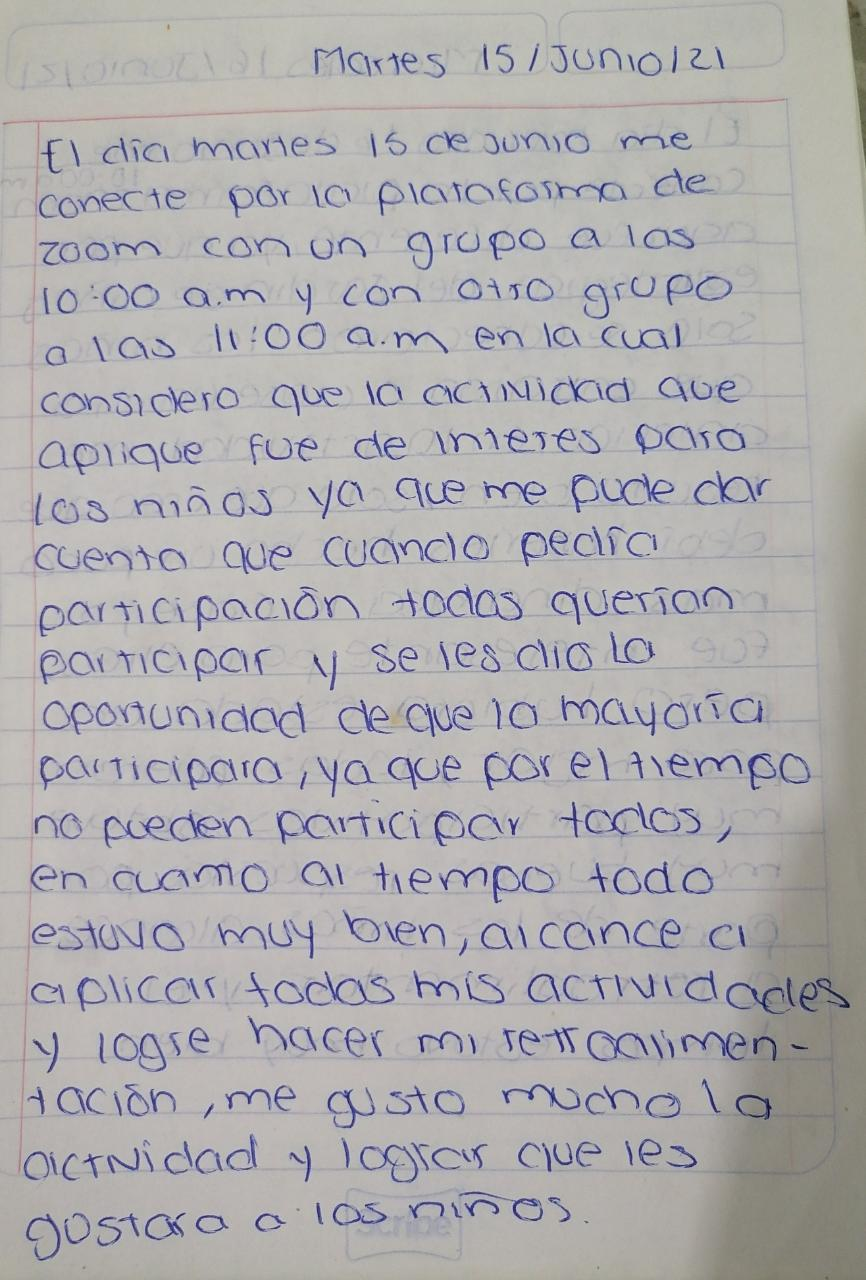 Martes 15/Junio/21
El día martes 15 de Junio me
conecte por la plataforma de
zoom con un grupo a las
10:00 a.m y con otro grupo
a las 11:00 a.m en la cual
considero que la actividad que
aplique fue de interes para
los niños ya que me pude dar
cuenta que cuando pedía
participación todos querían
participar y se les dio la
oportunidad de que la mayoría
participara, ya que por el tiempo
no pueden participar todos,
en cuanto al tiempo todo
estuvo muy bien, alcance a
aplicar todas mis actividades
y logre hacer mi retroalimen-
tación, me gusto mucho la
actividad y lograr que les
gustara a los niños.
Scribe